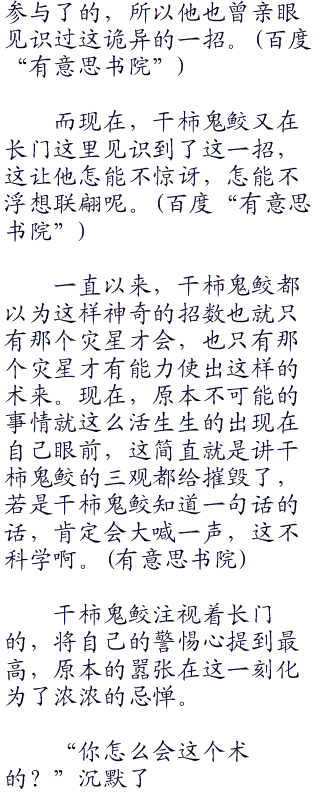 参与了的，所以他也曾亲眼
见识过这诡异的一招。(百度
“有意思书院”)
而现在，干柿鬼鲛又在
长门这里见识到了这一招，
这让他怎能不惊讶，怎能不
浮想联翩呢。(百度“有意思
书院”)
一直以来，干柿鬼鲛都
以为这样神奇的招数也就只
有那个灾星才会，也只有那
个灾星才有能力使出这样的
术来。现在，原本不可能的
事情就这么活生生的出现在
自己眼前，这简直就是讲干
柿鬼鲛的三观都给摧毁了，
若是干柿鬼鲛知道一句话的
话，肯定会大喊一声，这不
科学啊。(有意思书院)
干柿鬼鲛注视着长门
的，将自己的警惕心提到最
高，原本的嚣张在这一刻化
为了浓浓的忌惮。
“你怎么会这个术
的？”沉默了